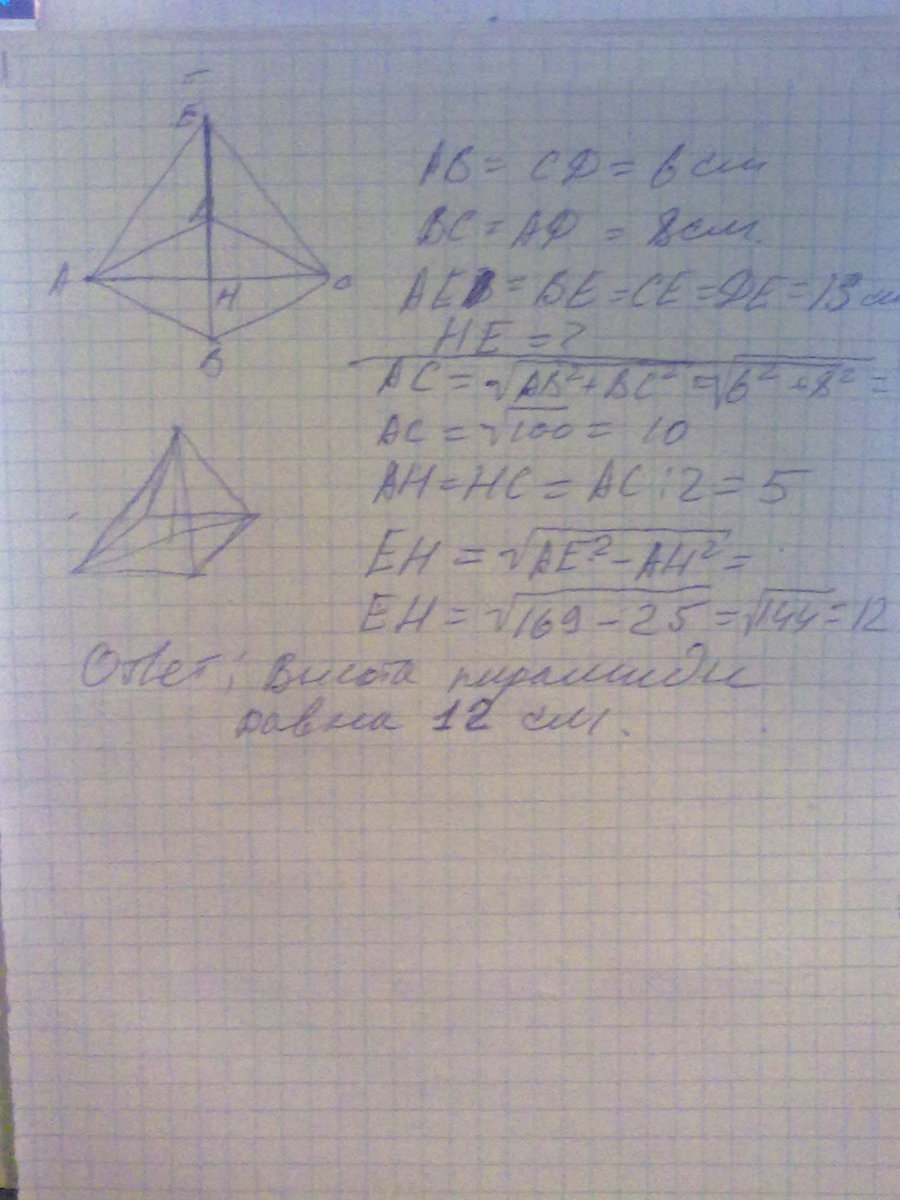 E
A
H
C
B
AB = CD = 6 см
BC = AD = 8 см.
AE = BE = CE = DE = 13 см
HE = ?
AC = √AB² + BC² = √6² + 8² =
AC = √100 = 10
AH = HC = AC : 2 = 5
EH = √AE² - AH² =
EH = √169 - 25 = √144 = 12
Ответ: Высота пирамиды
равна 12 см.